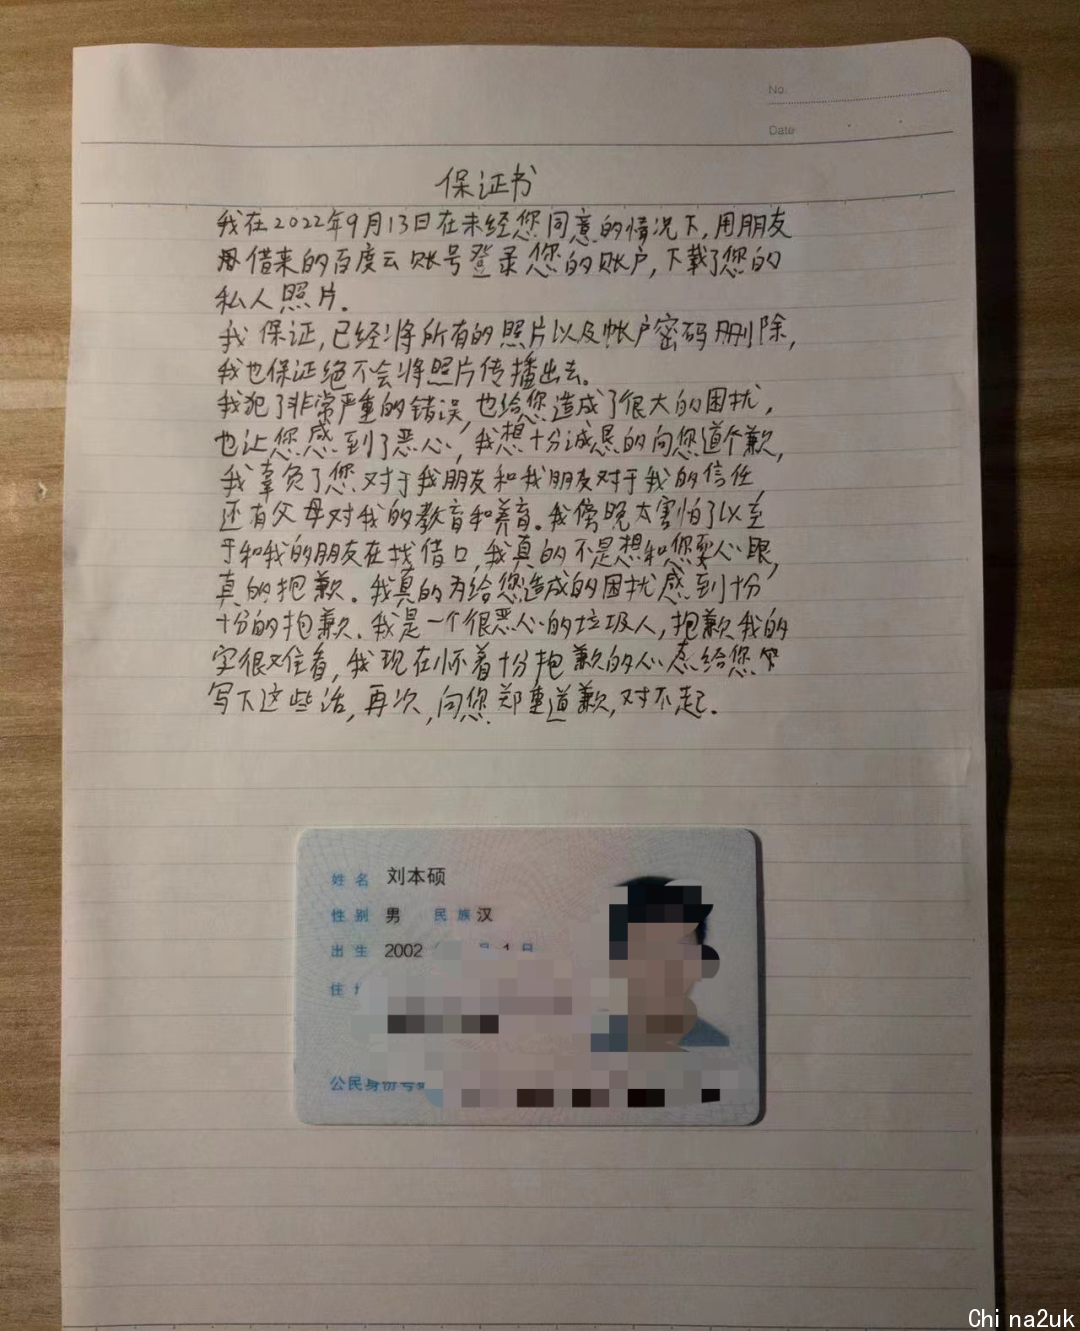 No.
Date
保证书
我在2022年9月13日在未经您同意的情况下，用朋友
借来的百度云账号登录您的账户，下载了您的
私人照片．
我保证，已经将所有的照片以及帐户密码删除，
我也保证绝不会将照片传播出去。
我犯了非常严重的错误，也给您造成了很大的困扰，
也让您感到了恶心，我想十分诚恳的向您道个歉，
我辜负了您对于我朋友和我朋友对于我的信任
还有父母对我的教育和养育。我傍晚太害怕了以至
于和我的朋友在找借口，我真的不是想和您耍心眼，
真的抱歉。我真的为给您造成的困扰感到十分
十分的抱歉．我是一个很恶心的垃圾人，抱歉我的
字很难看，我现在怀着十分抱歉的心态给您
写下这些话，再次，向您郑重道歉，对不起．
姓名 刘本硕
性别 男 民族 汉
出生 2002 月 1 日
住
公民身份号
China2uk